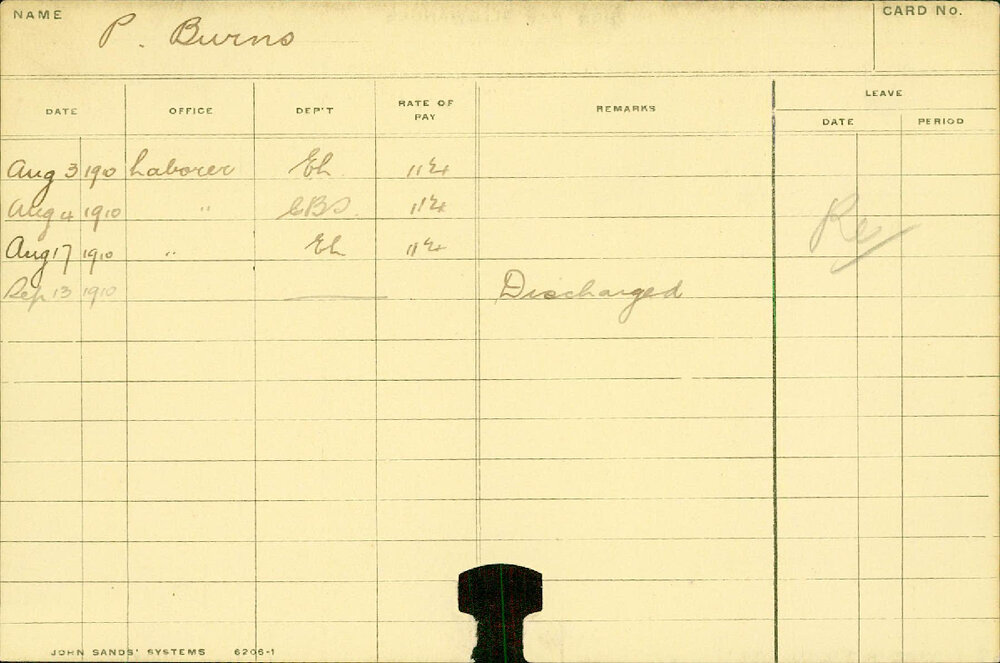 NAME P. Burns CARD NO.
LEAVE
DATE OFFICE DEP'T RATE OF PAY REMARKS DATE PERIOD
Aug 3 1910 Laborer Eh
Aug 4 1910 " EBS
Aug 17 1910 " Eh
Sep 13 1910 Discharged
Re
JOHN SANDS' SYSTEMS 6206-1